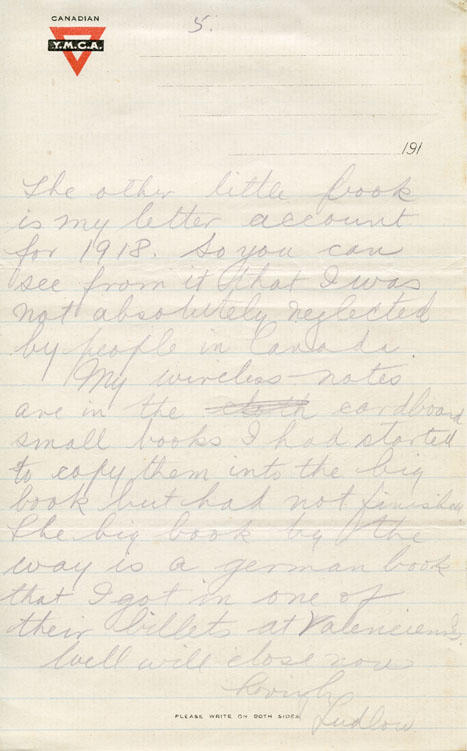 CANADIAN
Y.M.C.A.
5.
191
The other little book
is my letter account
for 1918. So you can
see from it that I was
not absolutely neglected
by people in Canada.
My wireless notes
are in the cloth cardboard
small books I had started
to copy them into the big
book but had not finished
The big book by the
way is a german book
that I got in one of
their billets at Valenciennes.
Well will close now
Lovingly
Ludlow
PLEASE WRITE ON BOTH SIDES